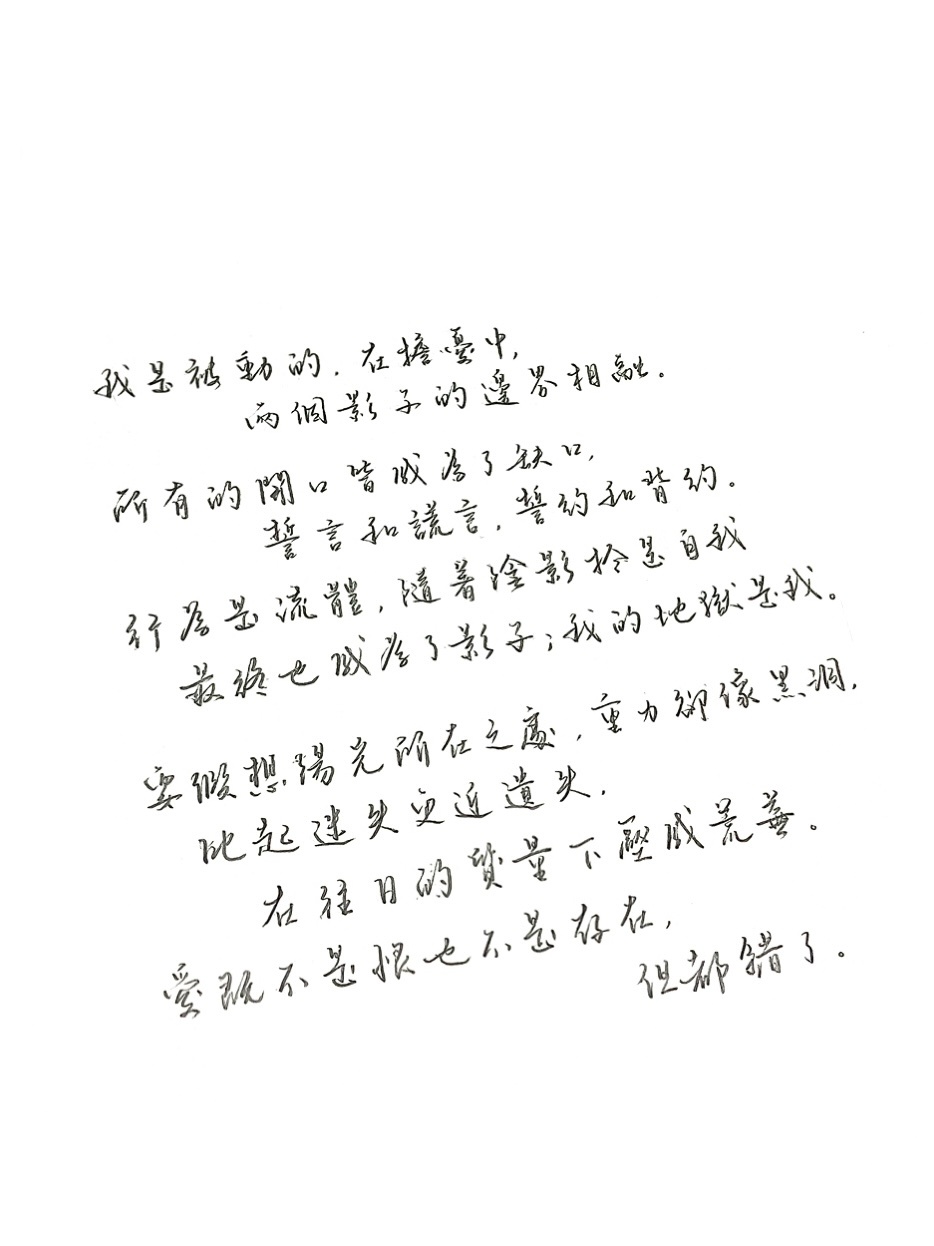 我是被動的．在擔憂中，
兩個影子的邊界相融．
所有的開口皆成為了缺口，
誓言和謊言，誓約和背約。
行為是流體，隨著陰影於是自我
最終也成為了影子；我的地獄是我。
要假想陽光所在之處，重力卻像黑洞，
比起迷失更近遺失．
在往日的質量下壓成荒蕪。
愛既不是恨也不是存在，
但都錯了．